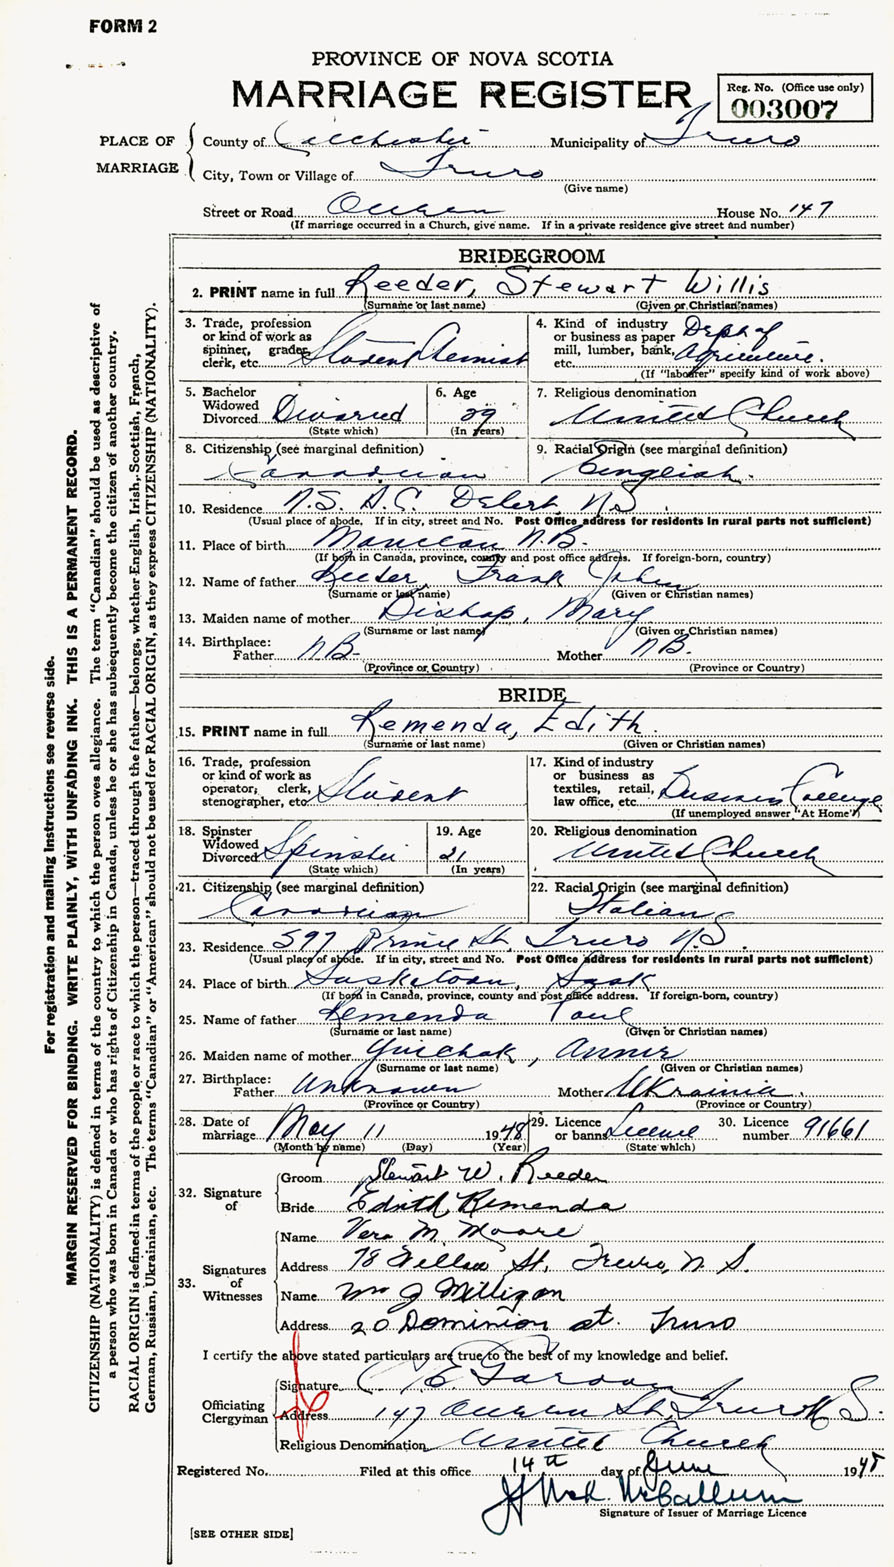 FORM 2
PROVINCE OF NOVA SCOTIA
MARRIAGE REGISTER
Reg. No. (Office use only)
003007
PLACE OF MARRIAGE
County of Colchester Municipality of Truro
City, Town or Village of Truro
(Give name)
Street or Road Queen House No. 147
(If marriage occurred in a Church, give name. If in a private residence give street and number)
BRIDEGROOM
2. PRINT name in full Reeder, Stewart Willis
(Surname or last name) (Given or Christian names)
3. Trade, profession or kind of work as spinner, grader, clerk, etc. Student Chemist
4. Kind of industry or business as paper mill, lumber, bank, etc. Dept of Agriculture.
(If "labourer" specify kind of work above)
5. Bachelor Widowed Divorced Divorced
(State which)
6. Age 29
(In years)
7. Religious denomination
United Church
8. Citizenship (see marginal definition)
Canadian
9. Racial Origin (see marginal definition)
English.
10. Residence N.S. A.C. Debert, N.S.
(Usual place of abode. If in city, street and No. Post Office address for residents in rural parts not sufficient)
11. Place of birth Moncton N.B.
(If born in Canada, province, county and post office address. If foreign-born, country)
12. Name of father Reeder, Frank John
(Surname or last name) (Given or Christian names)
13. Maiden name of mother Bishop, Mary
(Surname or last name) (Given or Christian names)
14. Birthplace:
Father N.B. Mother N.B.
(Province or Country) (Province or Country)
BRIDE
15. PRINT name in full Remenda, Edith.
(Surname or last name) (Given or Christian names)
16. Trade, profession or kind of work as operator, clerk, stenographer, etc. Student
17. Kind of industry or business as textiles, retail, law office, etc. Business College
(If unemployed answer "At Home")
18. Spinster Widowed Divorced Spinster
(State which)
19. Age 21
(In years)
20. Religious denomination
United Church
21. Citizenship (see marginal definition)
Canadian
22. Racial Origin (see marginal definition)
Italian
23. Residence 597 Prince St. Truro N.S.
(Usual place of abode. If in city, street and No. Post Office address for residents in rural parts not sufficient)
24. Place of birth Saskatoon, Sask
(If born in Canada, province, county and post office address. If foreign-born, country)
25. Name of father Remenda Paul
(Surname or last name) (Given or Christian names)
26. Maiden name of mother Yuichak, Annie
(Surname or last name) (Given or Christian names)
27. Birthplace:
Father Unknown Mother Ukrainia.
(Province or Country) (Province or Country)
28. Date of marriage May 11 1948
(Month by name) (Day) (Year)
29. Licence or banns Licence
(State which)
30. Licence number 91661
32. Signature of
Groom Stewart W. Reeder
Bride Edith Remenda
33. Signatures of Witnesses
Name Vera M. Moore
Address 78 St, Truro, N.S.
Name Wm J Milligan
Address 20 Dominion St. Truro
I certify the above stated particulars are true to the best of my knowledge and belief.
Officiating Clergyman
Signature C. E.
Address 147 Queen St, Truro N.S.
Religious Denomination United Church
Registered No. Filed at this office 14th day of June 1948
J. McCallum
Signature of Issuer of Marriage Licence
[SEE OTHER SIDE]
For registration and mailing instructions see reverse side.
MARGIN RESERVED FOR BINDING. WRITE PLAINLY, WITH UNFADING INK. THIS IS A PERMANENT RECORD.
CITIZENSHIP (NATIONALITY) is defined in terms of the country to which the person owes allegiance. The term "Canadian" should be used as descriptive of
a person who was born in Canada or who has rights of Citizenship in Canada, unless he or she has subsequently become the citizen of another country.
RACIAL ORIGIN is defined in terms of the people or race to which the person—traced through the father—belongs, whether English, Irish, Scottish, French,
German, Russian, Ukrainian, etc. The terms "Canadian" or "American" should not be used for RACIAL ORIGIN, as they express CITIZENSHIP (NATIONALITY).